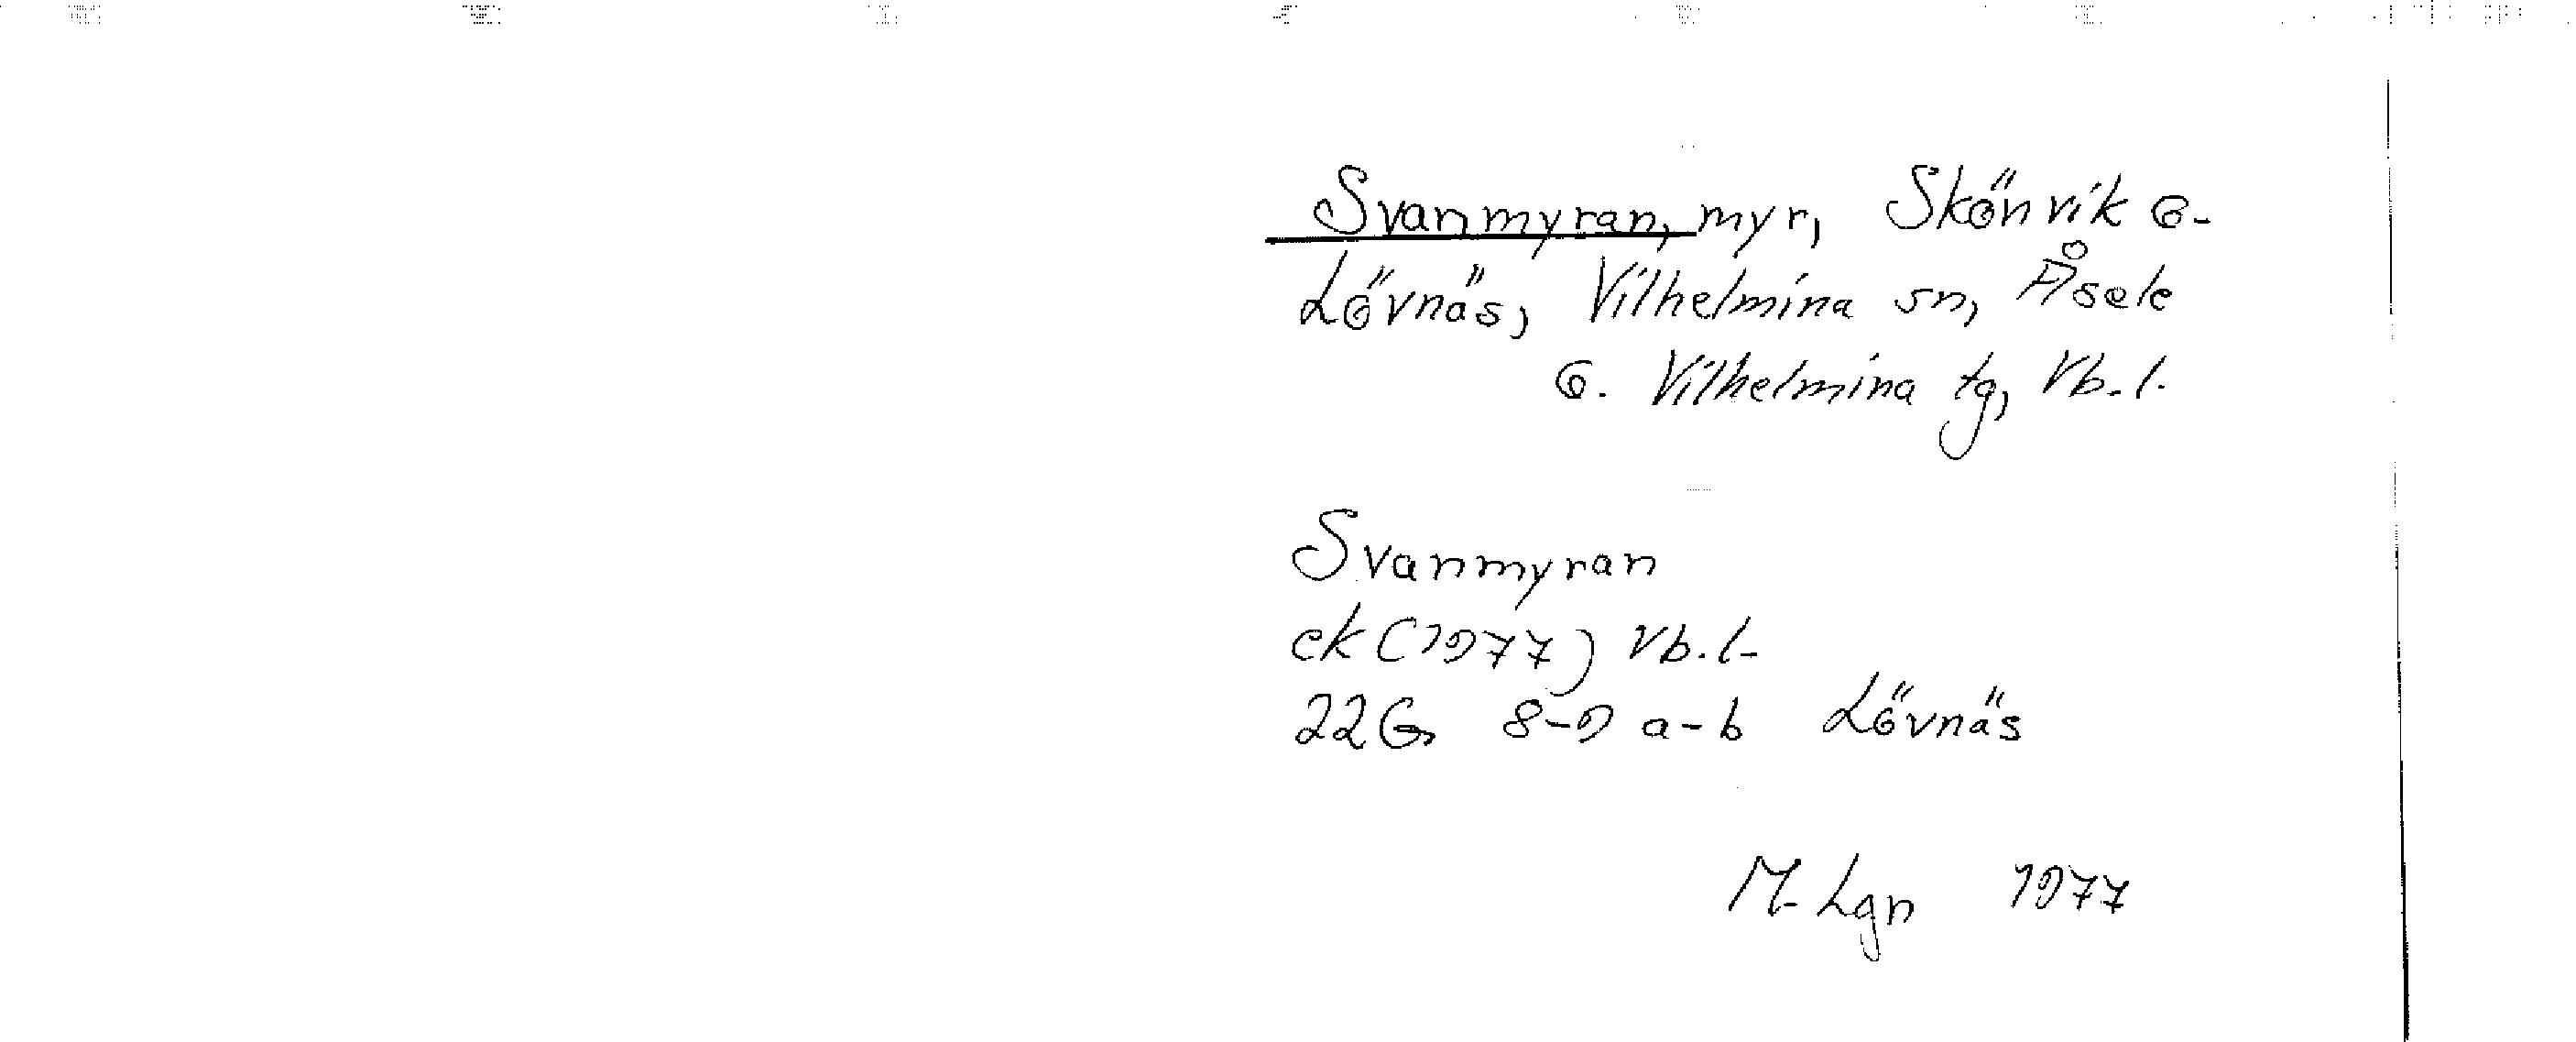 Svanmyran, myr, Skönvik o.
Lövnäs, Vilhelmina sn, Åsele
o. Vilhelmina tg, Vb. l.
Svanmyran
ek (1977) Vb. l.
22G 8-9 a-b Lövnäs
M. Lgn 1977